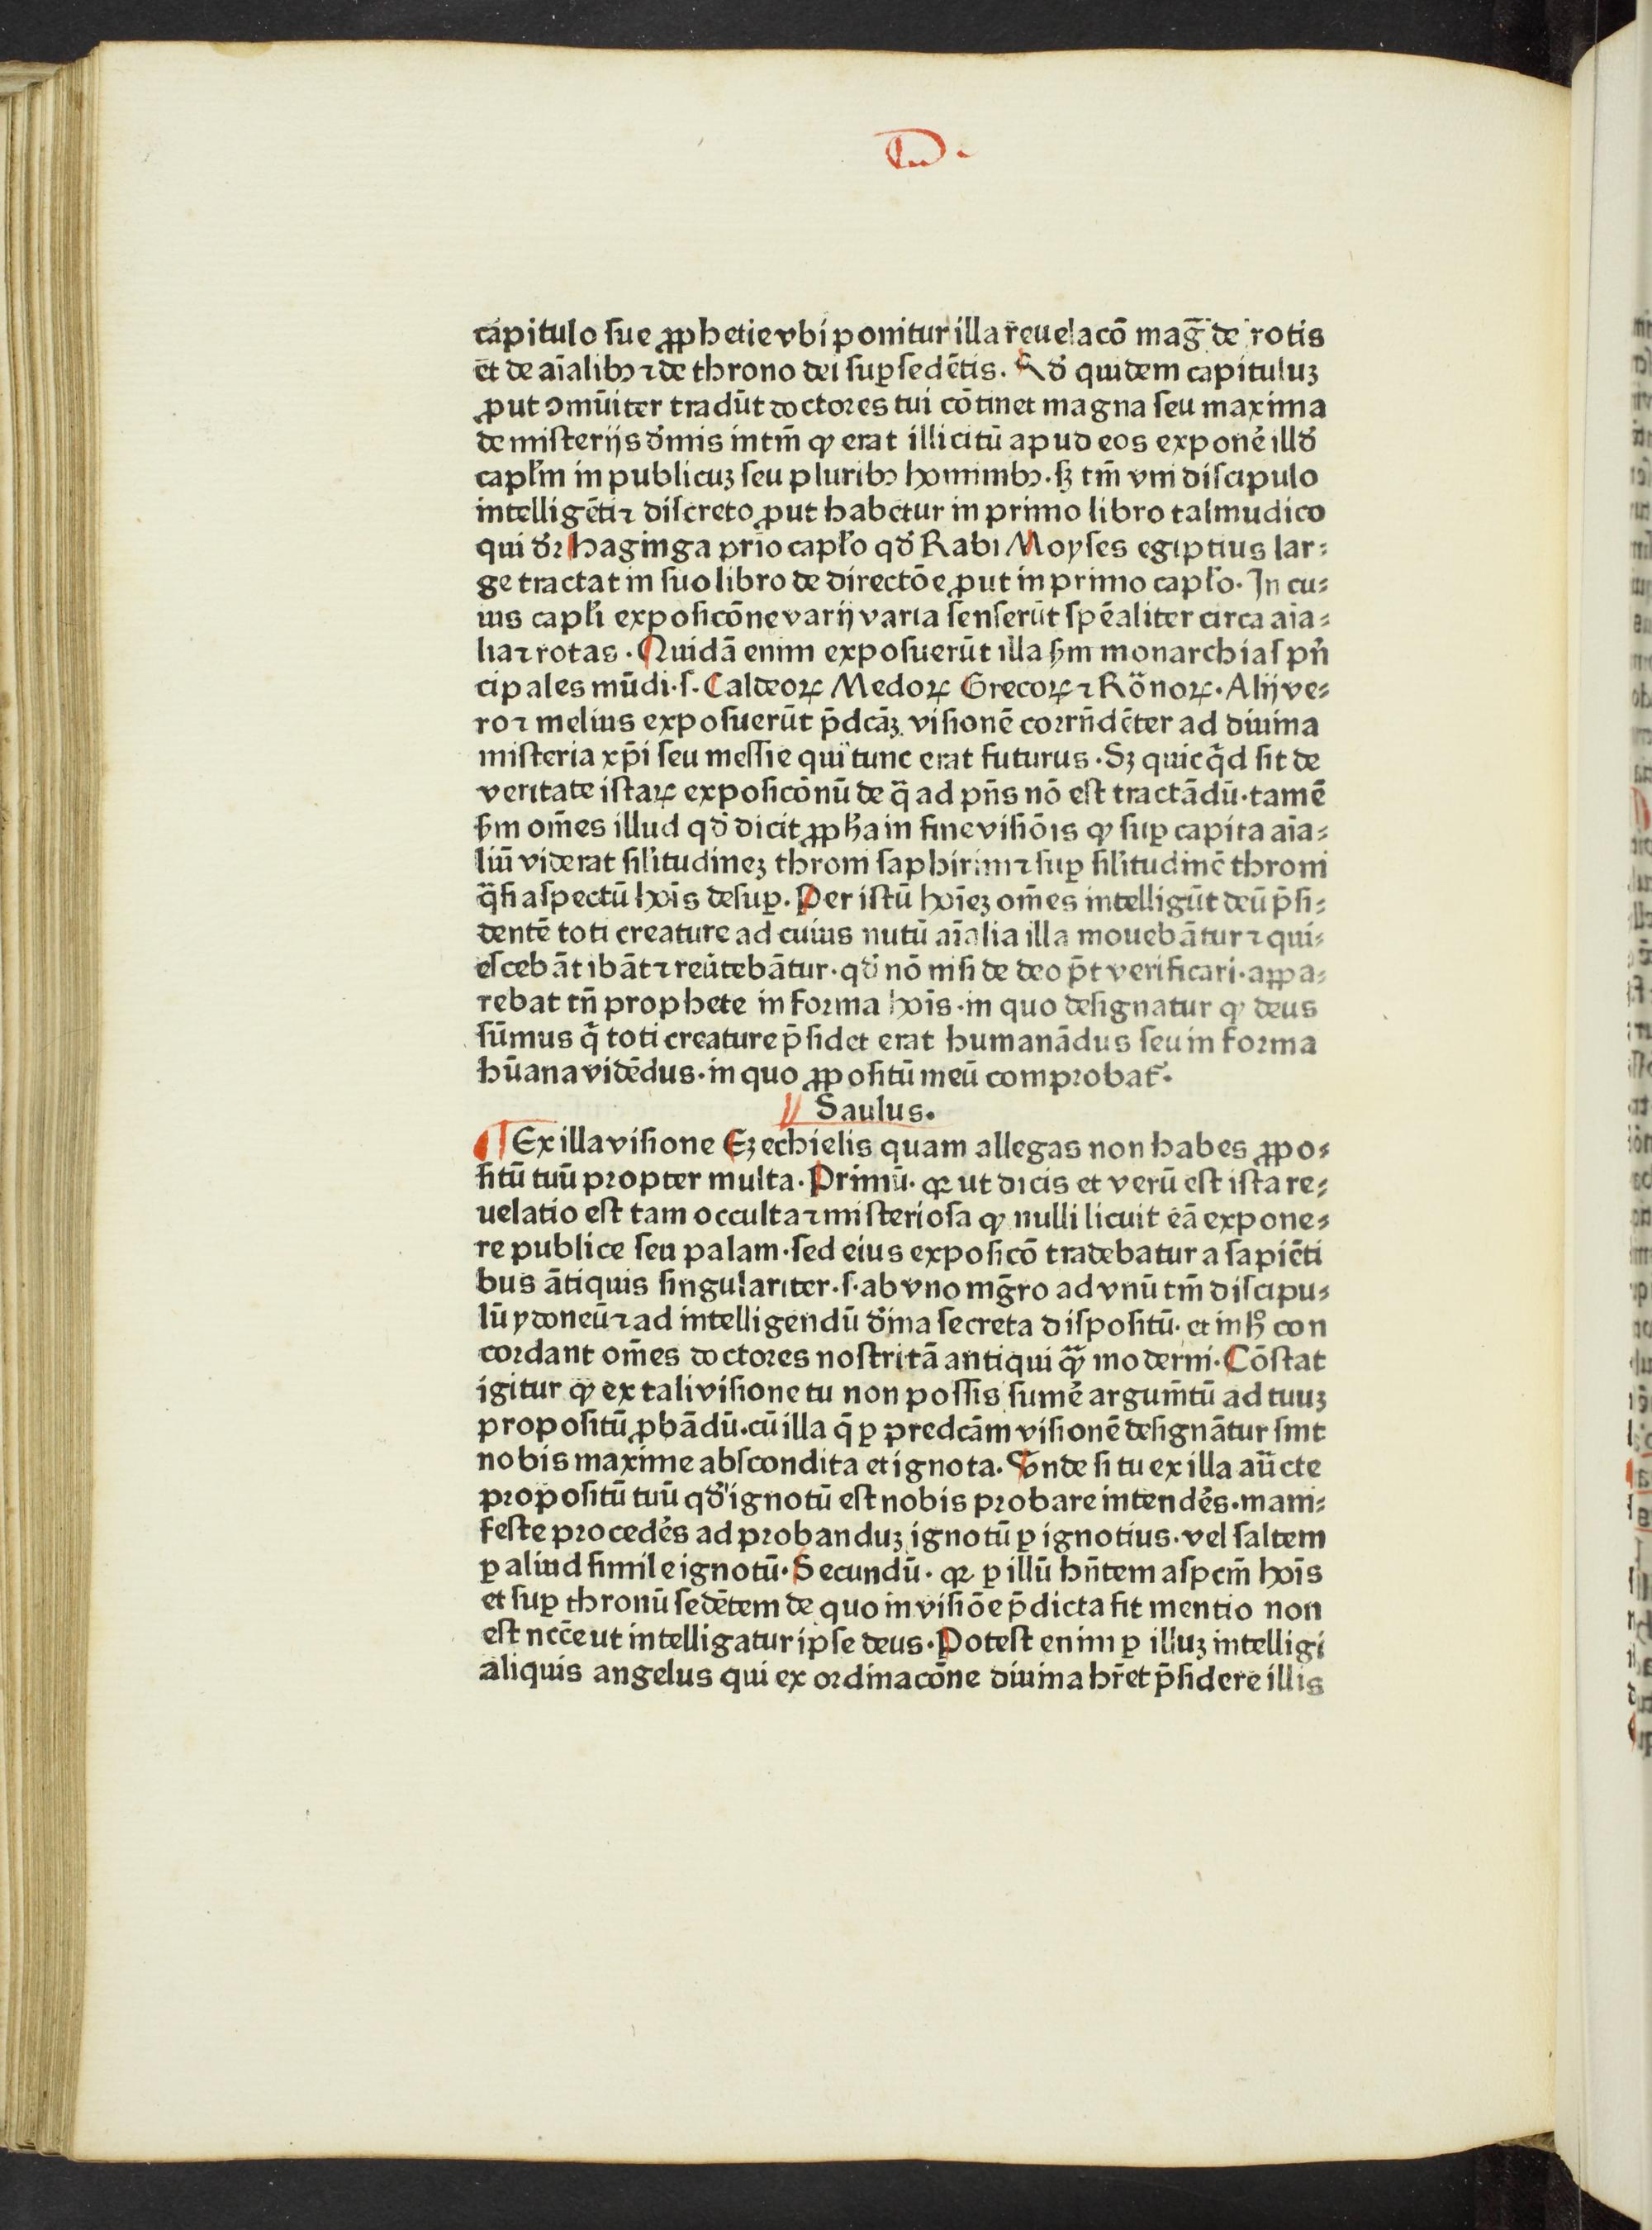 capitulo sue ꝓphetie vbi ponitur illa reuelacō maḡ de rotis
et de aīalibꝰ ⁊ de throno dei suꝑsedētis. Qđ quidem capituluꝫ
ꝓut ↄmūiter tradūt doctores tui cōtinet magna seu maxima
de misterijs diuinis intm̄ ꝙ erat illicitū apud eos exponē̄ illđ
capłm in publicuꝫ seu pluribꝰ hominibꝰ. sꝫ tm̄ vni discipulo
intelligēti ⁊ discreto ꝓut habetur in primo libro talmudico
qui dr̄ haginga prīo capło qđ Rabi Moyses egiptius lar⸗
ge tractat in suo libro de directōe ꝓut in primo capło. In cu⸗
ius capłi exposicōne varij varia senserūt spēaliter circa aīa⸗
lia ⁊ rotas. Quidā enim exposuerūt illa ẜm monarchias pn̄
cipales mūdi. s. Caldeoꝝ Medoꝝ Grecoꝝ ⁊ Rōnoꝝ. Alij ve⸗
ro ⁊ melius exposuerūt p̄dcāꝫ visionē corrn̄dēter ad diuina
misteria xp̄i seu messie qui tunc erat futurus. Sꝫ quicqͥd sit de
veritate istaꝝ exposicōnū de qͣ ad pn̄s nō est tractādū. tamē
ẜm om̄es illud qđ dicit ꝓph̄a in fine visiōis ꝙ suꝑ capita aīa⸗
liū viderat silitudineꝫ throni saphirini ⁊ suꝑ silitudinē throni
qͣsi aspectū hoīs desuꝑ. Per istū hoīeꝫ om̄es intelligūt deū p̄si⸗
dentē toti creature ad cuius nutū aīalia illa mouebātur ⁊ qui⸗
escebāt ibāt ⁊ reūtebātur. qđ nō nisi de deo p̄t verificari. aꝓpa⸗
rebat tn̄ prophete in forma hoīs. in quo designatur ꝙ deus
sūmus qͥ toti creature p̄sidet erat humanādus seu in forma
hūana vidēdus. in quo ꝓpositū meū comprobat̄.
Saulus.
¶ Ex illa visione Ezechielis quam allegas non habes ꝓpo⸗
sitū tuū propter multa. Primū. qꝛ ut dicis et verū est ista re⸗
uelatio est tam occulta ⁊ misteriosa ꝙ nulli licuit eā expone⸗
re publice seu palam. sed eius exposicō tradebatur a sapiēti
bus ātiquis singulariter. s. ab vno mḡro ad vnū tm̄ discipu⸗
lū ydoneū ⁊ ad intelligendū diuina secreta dispositū. et in hͦ con
cordant om̄es doctores nostri tā antiqui qͣꝫ moderni. Cōstat
igitur ꝙ ex tali visione tu non possis sumē̄ argum̄tū ad tuuꝫ
propositū ꝓbādū. cū illa q̄ ꝑ predcām visionē designātur sint
nobis maxime abscondita et ignota. Vnde si tu ex illa auc̄te
propositū tuū qđ ignotū est nobis probare intendēs. mani⸗
feste procedēs ad probanduꝫ ignotū ꝑ ignotius. vel saltem
ꝑ aliud simile ignotū. Secundū. qꝛ ꝑ illū hn̄tem aspcm̄ hoīs
et suꝑ thronū sedētem de quo in visiōe p̄dicta fit mentio non
est ncc̄e ut intelligatur ipse deus. Potest enim ꝑ illuꝫ intelligi
aliquis angelus qui ex ordinacōne diuina hr̄et p̄sidere illis